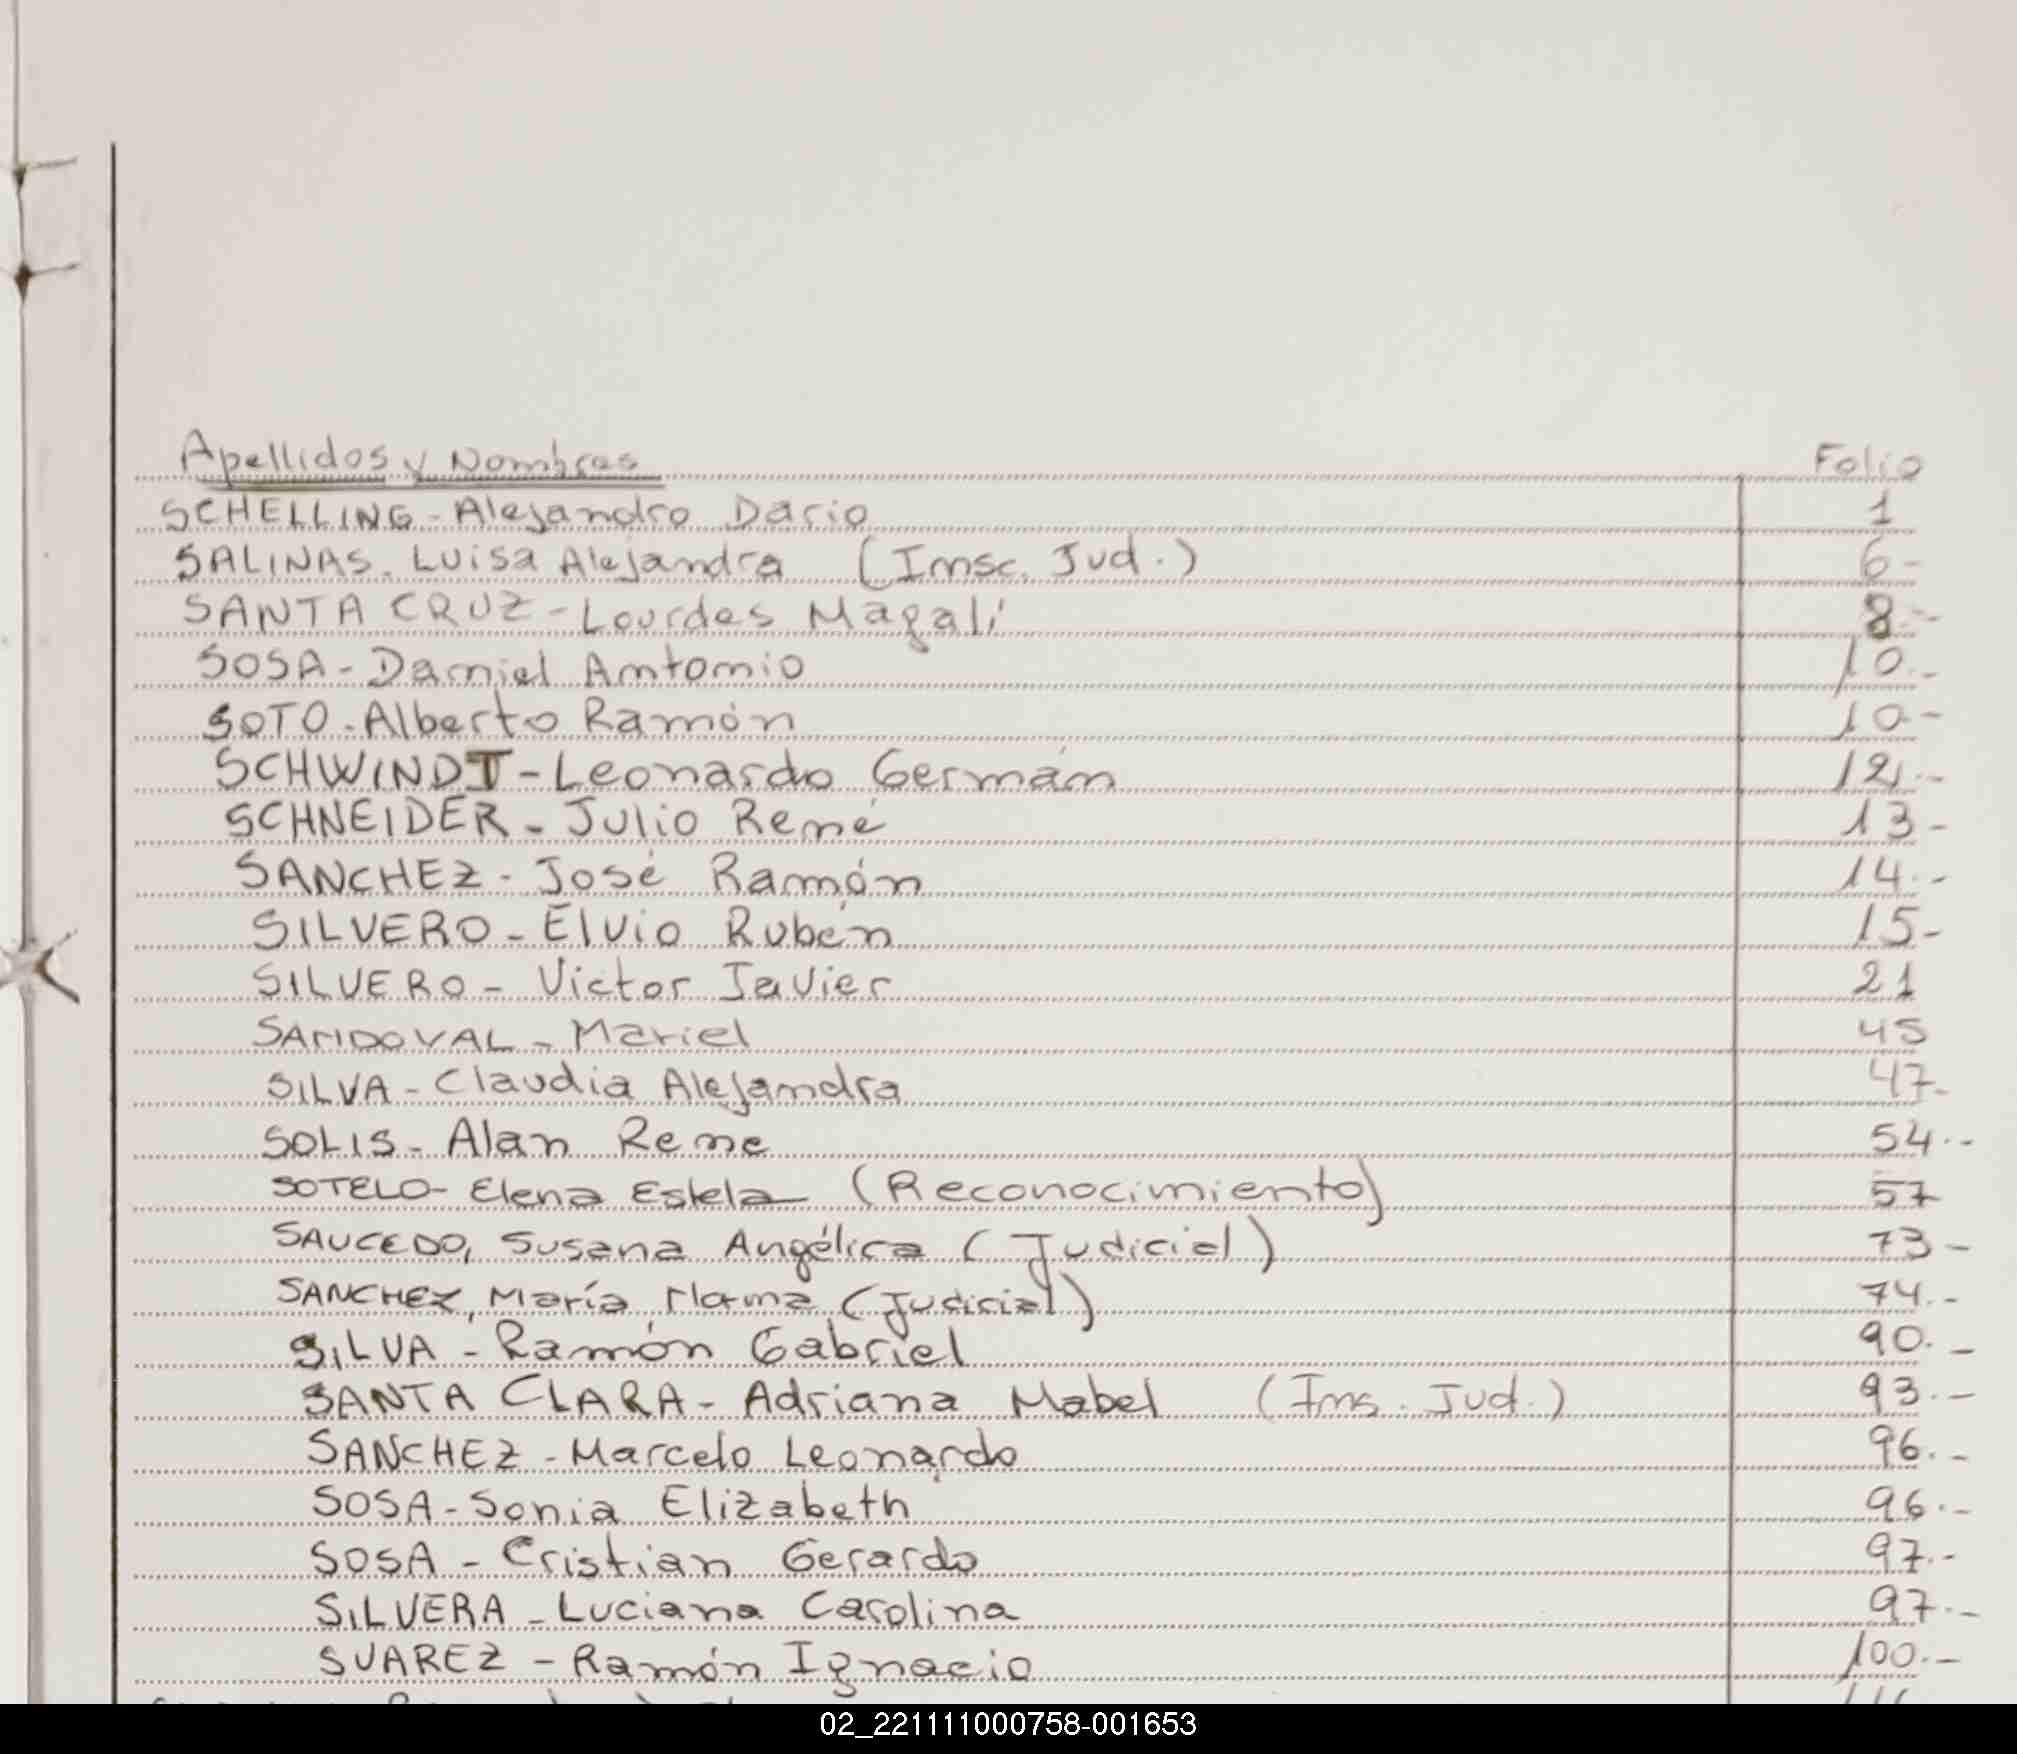 Apellidos y Nombres Folio
SCHELLING - Alejandro Dario 1
SALINAS - Luisa Alejandra (Insc. Jud.) 6-
SANTA CRUZ - Lourdes Magalí 8.-
SOSA - Daniel Antonio 10.-
SOTO - Alberto Ramón 10-
SCHWINDT - Leonardo Germán 12.-
SCHNEIDER - Julio René 13-
SANCHEZ - José Ramón 14.-
SILVERO - Elvio Rubén 15-
SILVERO - Victor Javier 21
SANDOVAL - Mariel 45
SILVA - Claudia Alejandra 47-
SOLIS - Alan Rene 54.-
SOTELO - Elena Estela (Reconocimiento) 57
SAUCEDO, Susana Angélica (Judicial) 73-
SANCHEZ, María Norma (Judicial) 74.-
SILVA - Ramón Gabriel 90.-
SANTA CLARA - Adriana Mabel (Ins. Jud.) 93.-
SANCHEZ - Marcelo Leonardo 96.-
SOSA - Sonia Elizabeth 96.-
SOSA - Cristian Gerardo 97.-
SILVERA - Luciana Carolina 97.-
SUAREZ - Ramón Ignacio 100.-
02_221111000758-001653